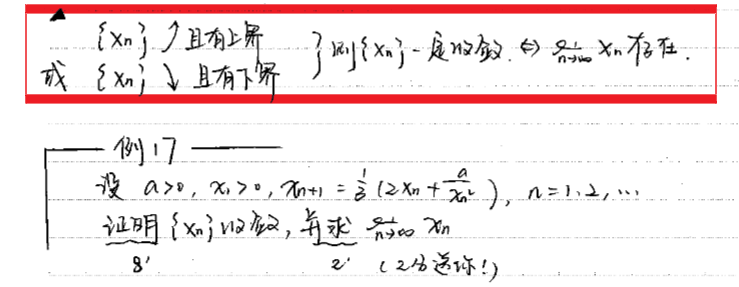 ▲
{xn} ↗ 且有上界
或 {xn} ↘ 且有下界 } 则{xn}一定收敛. ⇔ lim n→∞ xn 存在.
例17
设 a>0, x₁>0, xn+1 = 1/3 (2xn + a/xn²), n=1,2,…
证明{xn}收敛, 并求 lim n→∞ xn
8' 2' (2分送你!)